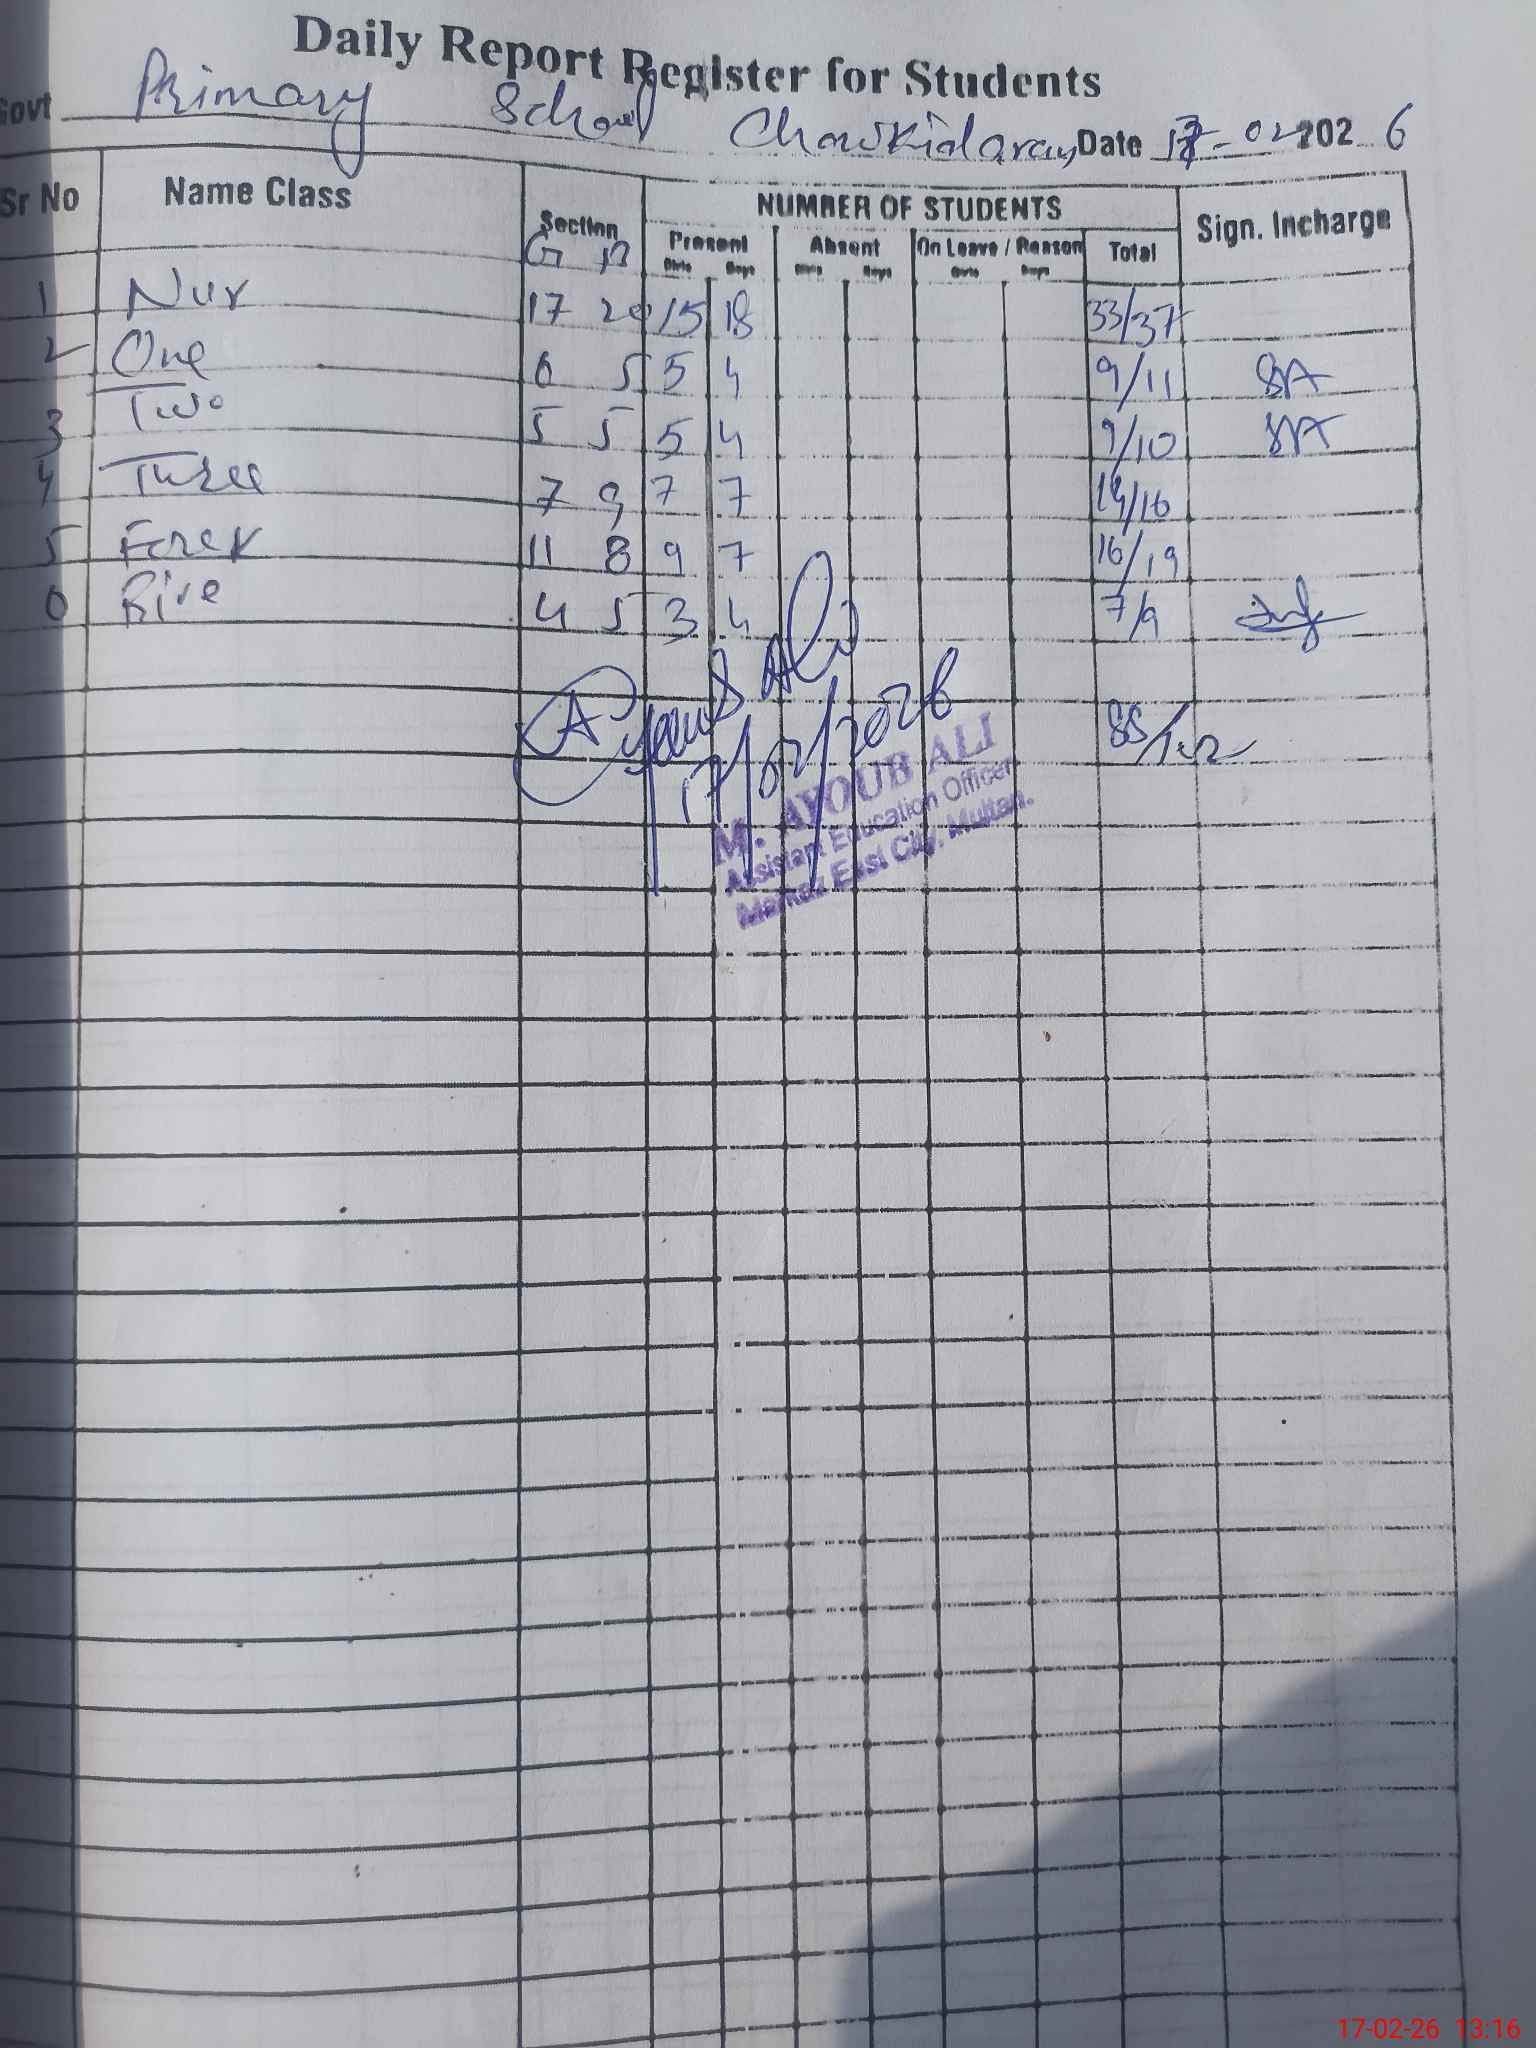 Daily Report Register for Students
Govt Primary School Chowkidaran Date 17-02-2026
Sr No Name Class Section NUMBER OF STUDENTS Sign. Incharge
G B Present Absent On Leave / Reason Total
Girls Boys Girls Boys Girls Boys
1 Nur 17 20 15 18 33/37
2 One 6 5 5 4 9/11 SA
3 Two 5 5 5 4 9/10 SA
4 Three 7 9 7 7 14/16
5 Four 11 8 9 7 16/19
6 Five 4 5 3 4 7/9
88/102
Ayoub Ali
17/02/2026
M. AYOUB ALI
Assistant Education Officer
Markaz East City, Multan.
17-02-26 13:16